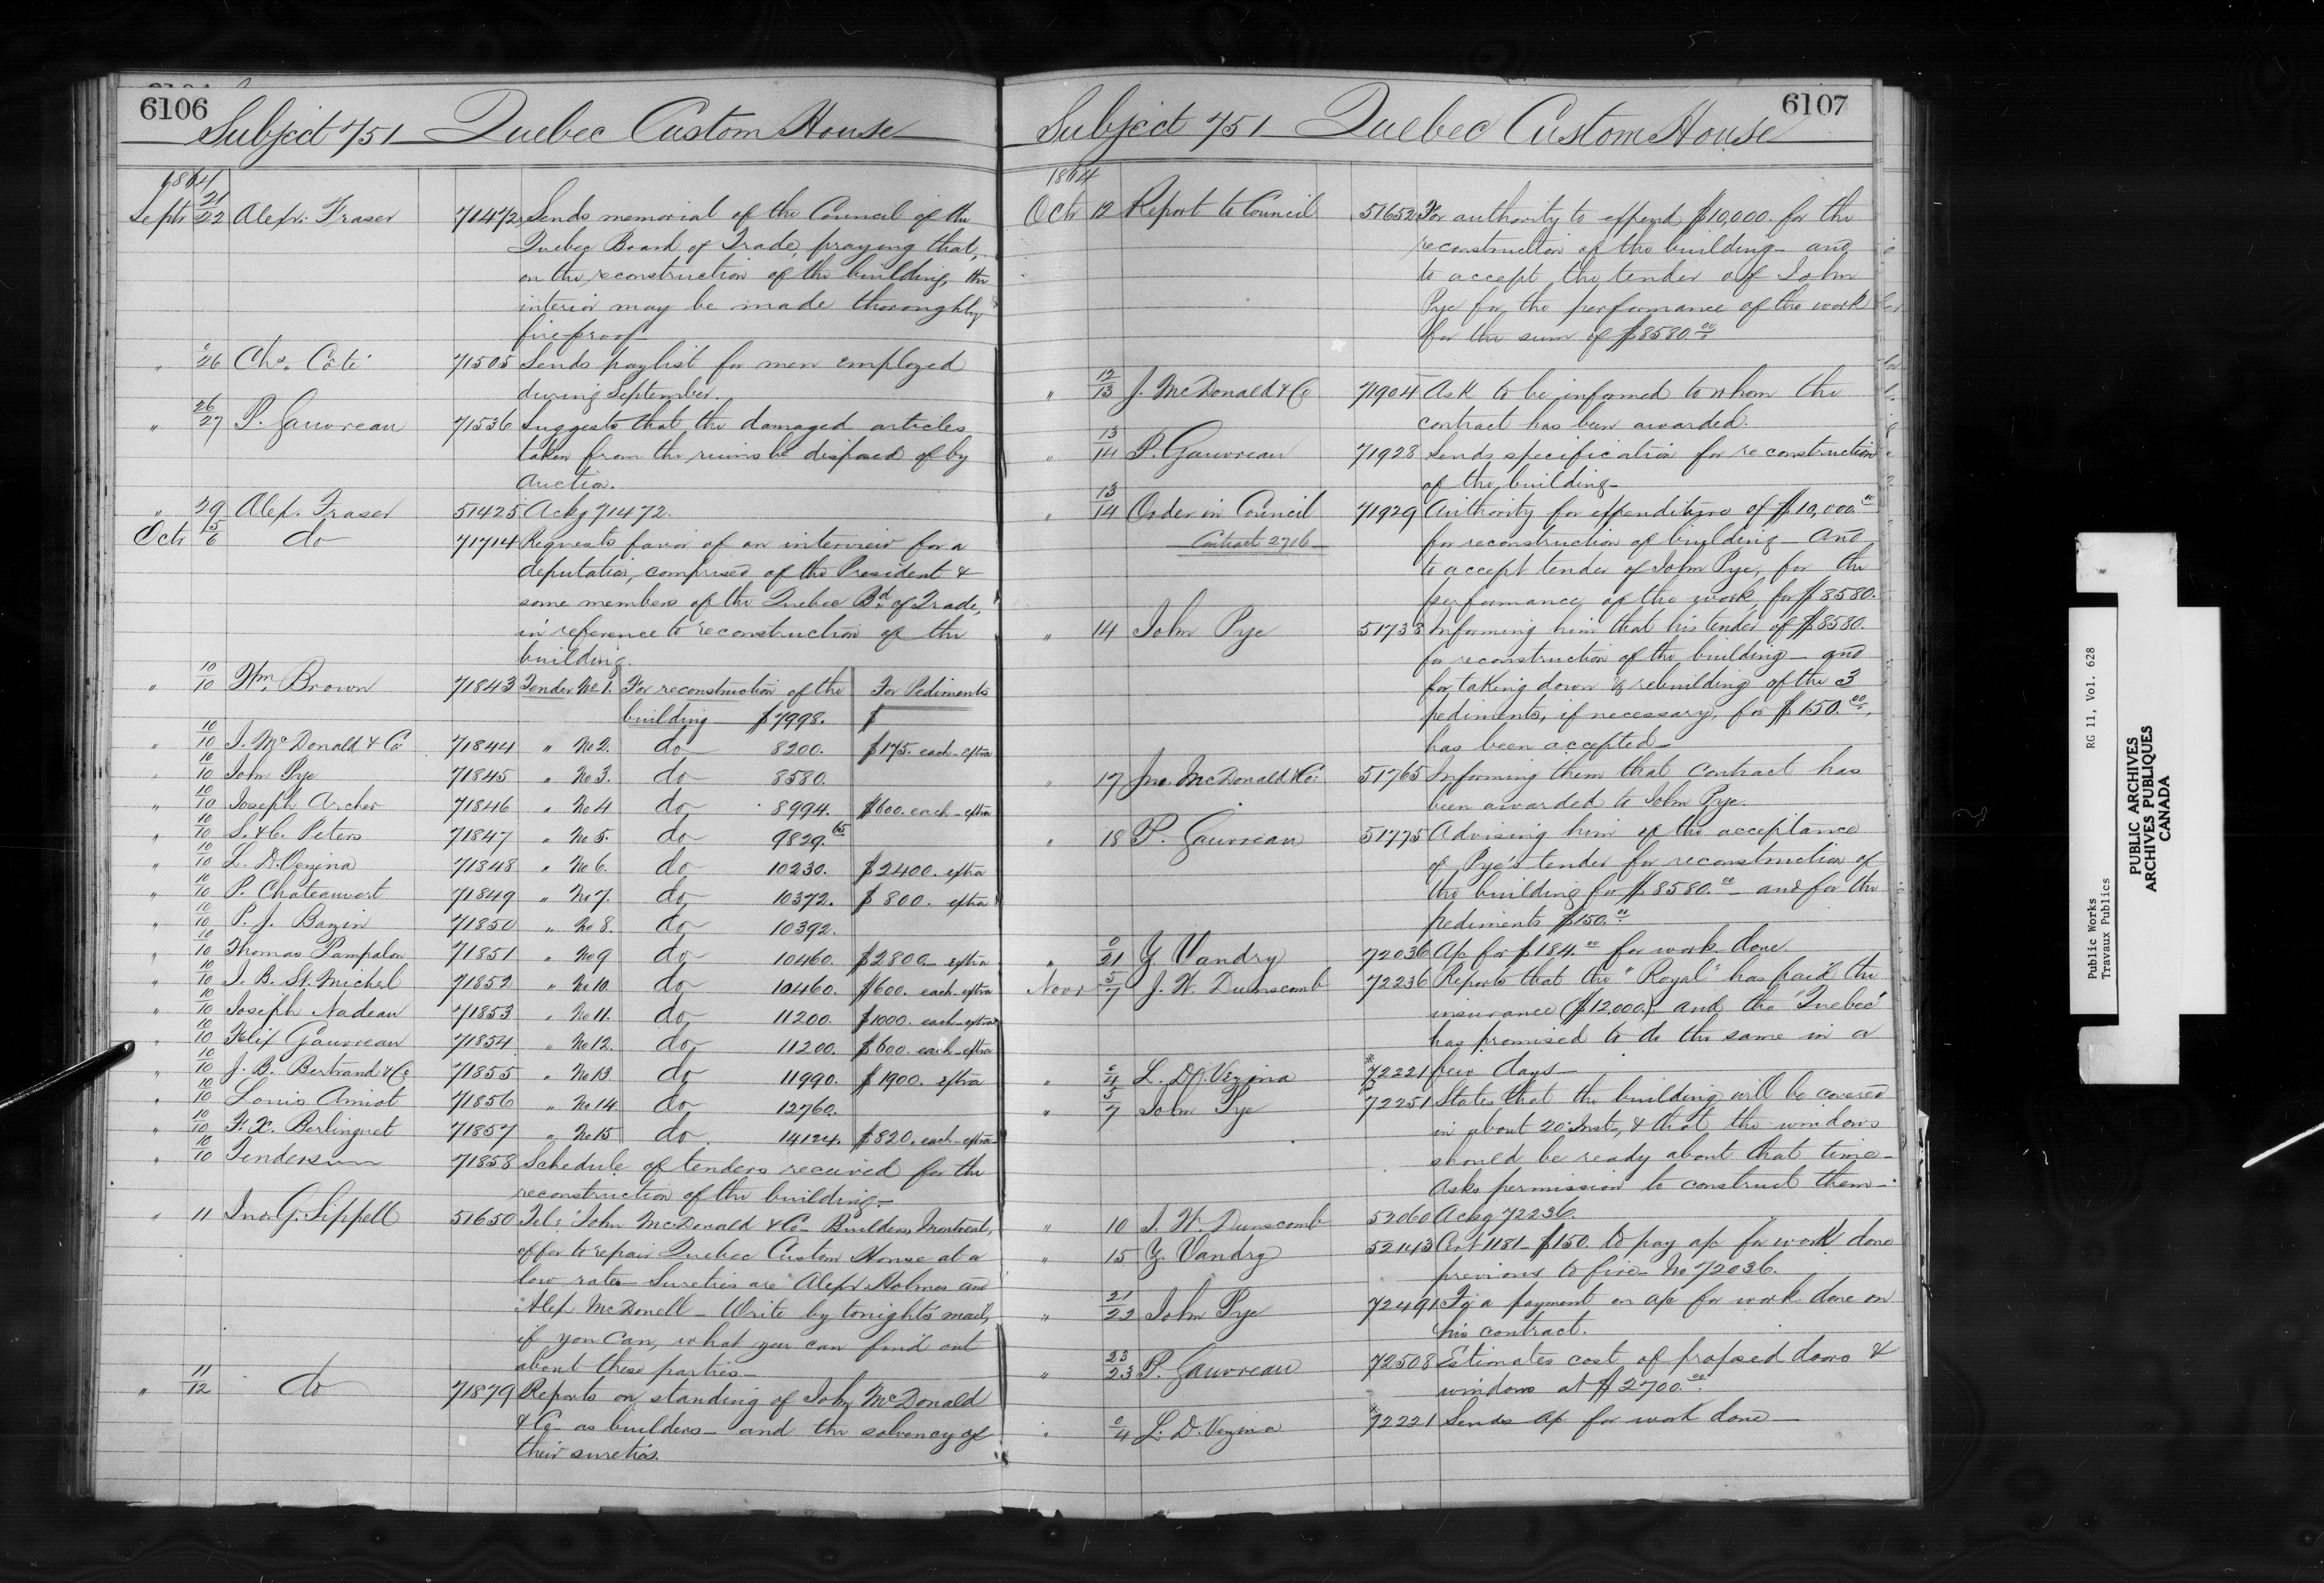 6106
Subject 751 Quebec Custom House
1864
Septr 21/22 Alexr. Fraser 71472 Sends memorial of the Council of the
Quebec Board of Trade, praying that,
on the reconstruction of the building, the
interior may be made thoroughly
fire-proof
" 0/26 Chs. Côté 71505 Sends paylist for men employed
during September.
" 26/27 P. Gauvreau 71536 Suggests that the damaged articles
taken from the ruins be disposed of by
Auction.
" 29 Alex. Fraser 51425 Ackg 71472.
Octr 5/6 do 71714 Requests favor of an interview for a
deputation, comprised of the President &
some members of the Quebec Bd. of Trade,
in reference to reconstruction of the
building.
" 10/10 Wm. Brown 71843 Tender No 1. For reconstruction of the For Pediments
building $7998. $
" 10/10 J. McDonald & Co 71844 " No 2. do 8200. $175. each - extra
" 10/10 John Pye 71845 " No 3. do 8580.
" 10/10 Joseph Archer 71846 " No 4 do 8994. $600. each - extra
" 10/10 S. & C. Peters 71847 " No 5. do 9829.65
" 10/10 L. D. Vezina 71848 " No 6. do 10230. $2400. extra
" 10/10 P. Chateauvert 71849 " No 7. do 10372. $800. extra
" 10/10 P. J. Bazin 71850 " No 8. do 10392.
" 10/10 Thomas Pampalon 71851 " No 9 do 10460. $2800 - extra
" 10/10 J. B. St. Michel 71852 " No 10. do 10460. $600. each - extra
" 10/10 Joseph Nadeau 71853 " No 11. do 11200. $1000. each - extra
" 10/10 Felix Gauvreau 71854 " No 12. do 11200. $600. each - extra
" 10/10 J. B. Bertrand & Co 71855 " No 13. do 11990. $1900. extra
" 10/10 Louis Amiot 71856 " No 14. do 12760.
" 10/10 F. X. Berlinguet 71857 " No 15 do 14124. $820. each - extra
" 10/10 Tenders 71858 Schedule of tenders received for the
reconstruction of the building -
" 11 Jno. G. Sippell 51650 Tel: "John McDonald & Co - Builders, Montreal,
offer to repair Quebec Custom House at a
low rate - Sureties are Alexr Holmes and
Alex McDonell - Write by tonight's mail,
if you can, what you can find out
about these parties -
" 11/12 do 71879 Reports on standing of John McDonald
& Co - as builders - and the solvency of
their sureties.
6107
Subject 751 Quebec Custom House
1864
Octr 12 Report to Council 51652 For authority to expend $10,000. for the
reconstruction of the building - and
to accept the tender of John
Pye for the performance of the work
for the sum of $8580.00
" 12/13 J. McDonald & Co 71904 Ask to be informed to whom the
contract has been awarded.
" 13/14 P. Gauvreau 71928 Sends specification for reconstruction
of the building -
" 13/14 Order in Council 71929 Authority for expenditure of $10,000.00
Contract 2716 for reconstruction of building - And
to accept tender of John Pye, for the
performance of the work, for $8580.
" 14 John Pye 51733 Informing him that his tender of $8580.
for reconstruction of the building - and
for taking down & rebuilding of the 3
pediments, if necessary, for $150.00,
has been accepted -
" 17 Jno. McDonald & Co: 51765 Informing them that contract has
been awarded to John Pye.
" 18 P. Gauvreau 51775 Advising him of the acceptance
of Pye's tender for reconstruction of
the building for $8580.00 - and for the
pediments $150.00
" 0/21 Z. Vandry 72036 A/c for $184.00 for work done
Novr 5/7 J. W. Dunscomb 72236 Reports that the "Royal" has paid the
insurance ($12,000.) and the "Quebec"
has promised to do the same in a
" 0/4 L. D. Vezina 72221 few days -
" 5/7 John Pye 72251 States that the building will be covered
in about 20 Inst, & that the windows
should be ready about that time -
Asks permission to construct them -
" 10 J. W. Dunscomb 52060 Ackg 72236.
" 15 Z. Vandry 52143 Cert 1181 - $150. to pay a/c for work done
previous to fire - No 72036.
" 21/22 John Pye 72491 For a payment on a/c for work done on
his contract.
" 23/23 P. Gauvreau 72508 Estimates cost of proposed doors &
windows at $2700.00
" 0/4 L. D. Vezina 72221 Sends a/c for work done -
Public Works RG 11, Vol. 628
Travaux Publics
PUBLIC ARCHIVES
ARCHIVES PUBLIQUES
CANADA